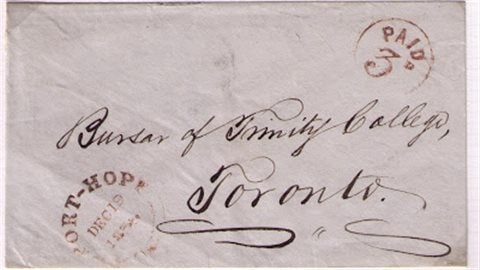 PAID
3D
Bursar of Trinity College,
Toronto.
PORT-HOPE
DEC 19